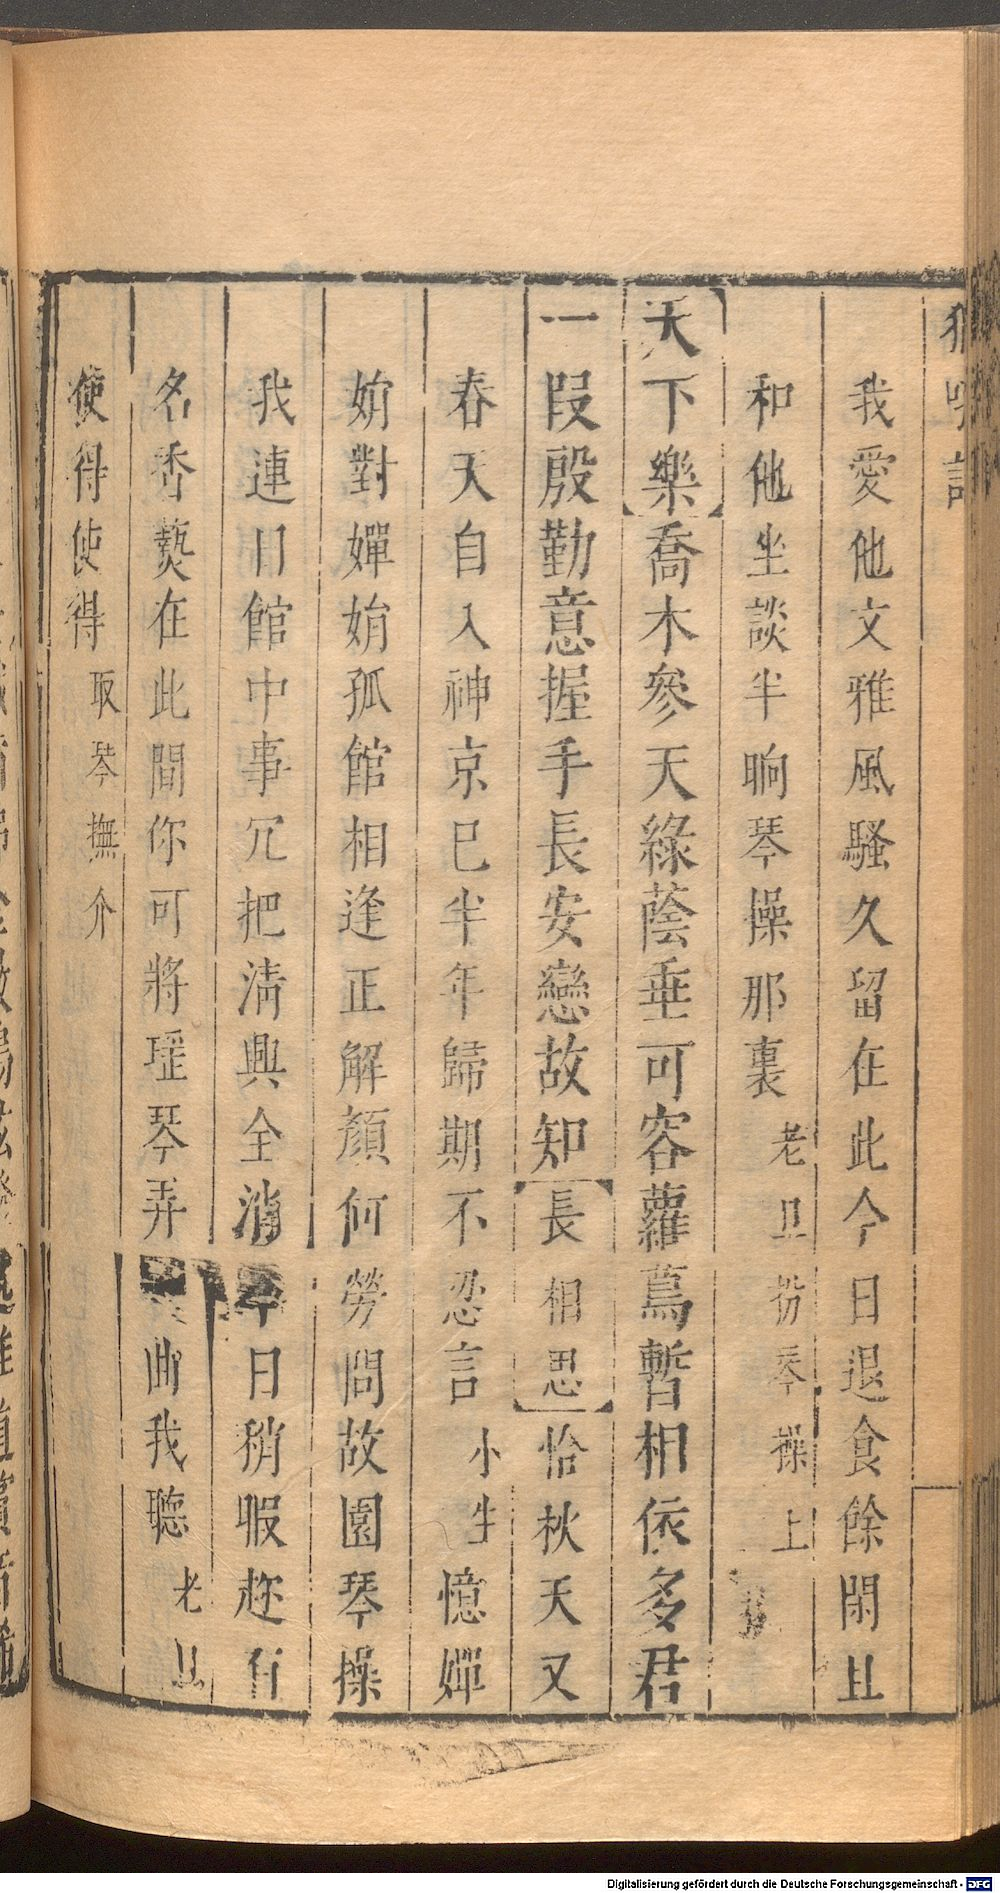 我愛他文雅風騷久留在此今日退食餘閑且
和他坐談半晌琴操那裏老旦扮琴操上
天下樂喬木參天綠蔭垂可容蘿蔦暫相依多君
一段殷勤意握手長安戀故知長相思恰秋天又
春天自入神京巳半年歸期不忍言小生憶嬋
娟對嬋娟孤館相逢正解顏何勞問故園琴操
我連日館中事冗把清興全消今日稍暇趂有
名香爇在此間你可將瑶琴弄曲我聽老旦
使得使得取琴撫介
Digitalisierung gefördert durch die Deutsche Forschungsgemeinschaft - DFG